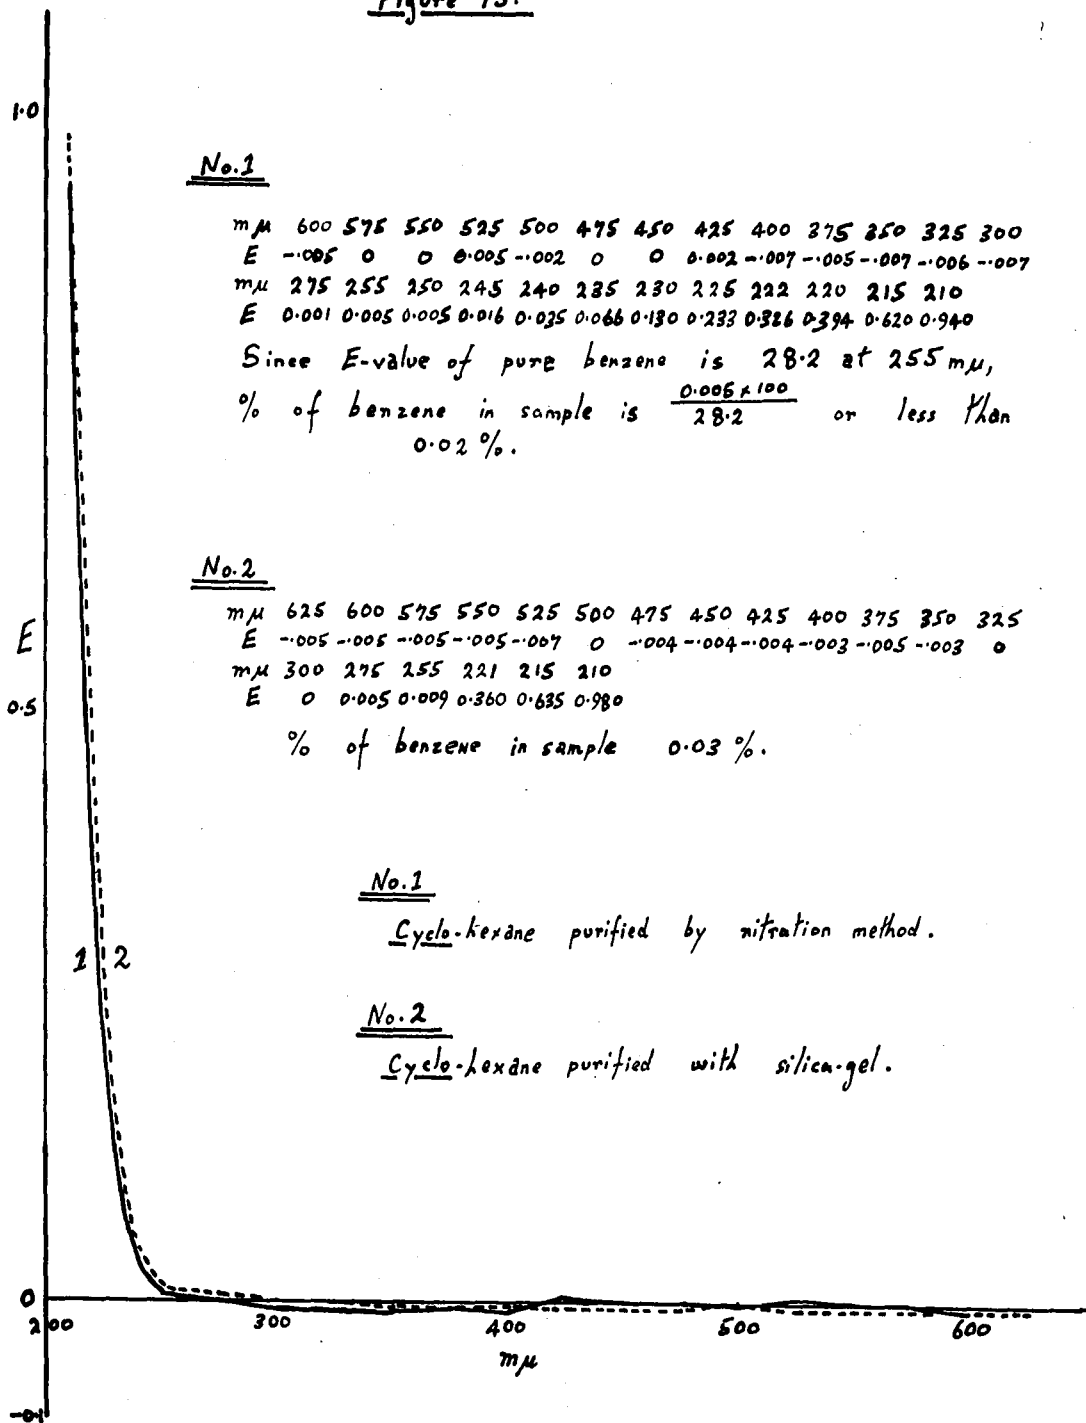 Figure 13.
1.0
No.1
mμ 600 575 550 525 500 475 450 425 400 375 350 325 300
E -.005 0 0 0.005 -.002 0 0 0.002 -.007 -.005 -.007 -.006 -.007
mμ 275 255 250 245 240 235 230 225 222 220 215 210
E 0.001 0.005 0.005 0.016 0.035 0.066 0.130 0.233 0.326 0.394 0.620 0.940
Since E-value of pure benzene is 28.2 at 255 mμ,
% of benzene in sample is 0.005 x 100 / 28.2 or less than
0.02 %.
No.2
mμ 625 600 575 550 525 500 475 450 425 400 375 350 325
E -.005 -.005 -.005 -.005 -.007 0 -.004 -.004 -.004 -.003 -.005 -.003 0
mμ 300 275 255 221 215 210
E 0 0.005 0.009 0.360 0.635 0.980
E
0.5
% of benzene in sample 0.03 %.
No.1
Cyclo-hexane purified by nitration method.
1 2
No.2
Cyclo-hexane purified with silica-gel.
0
200 300 400 500 600
mμ
-0.1